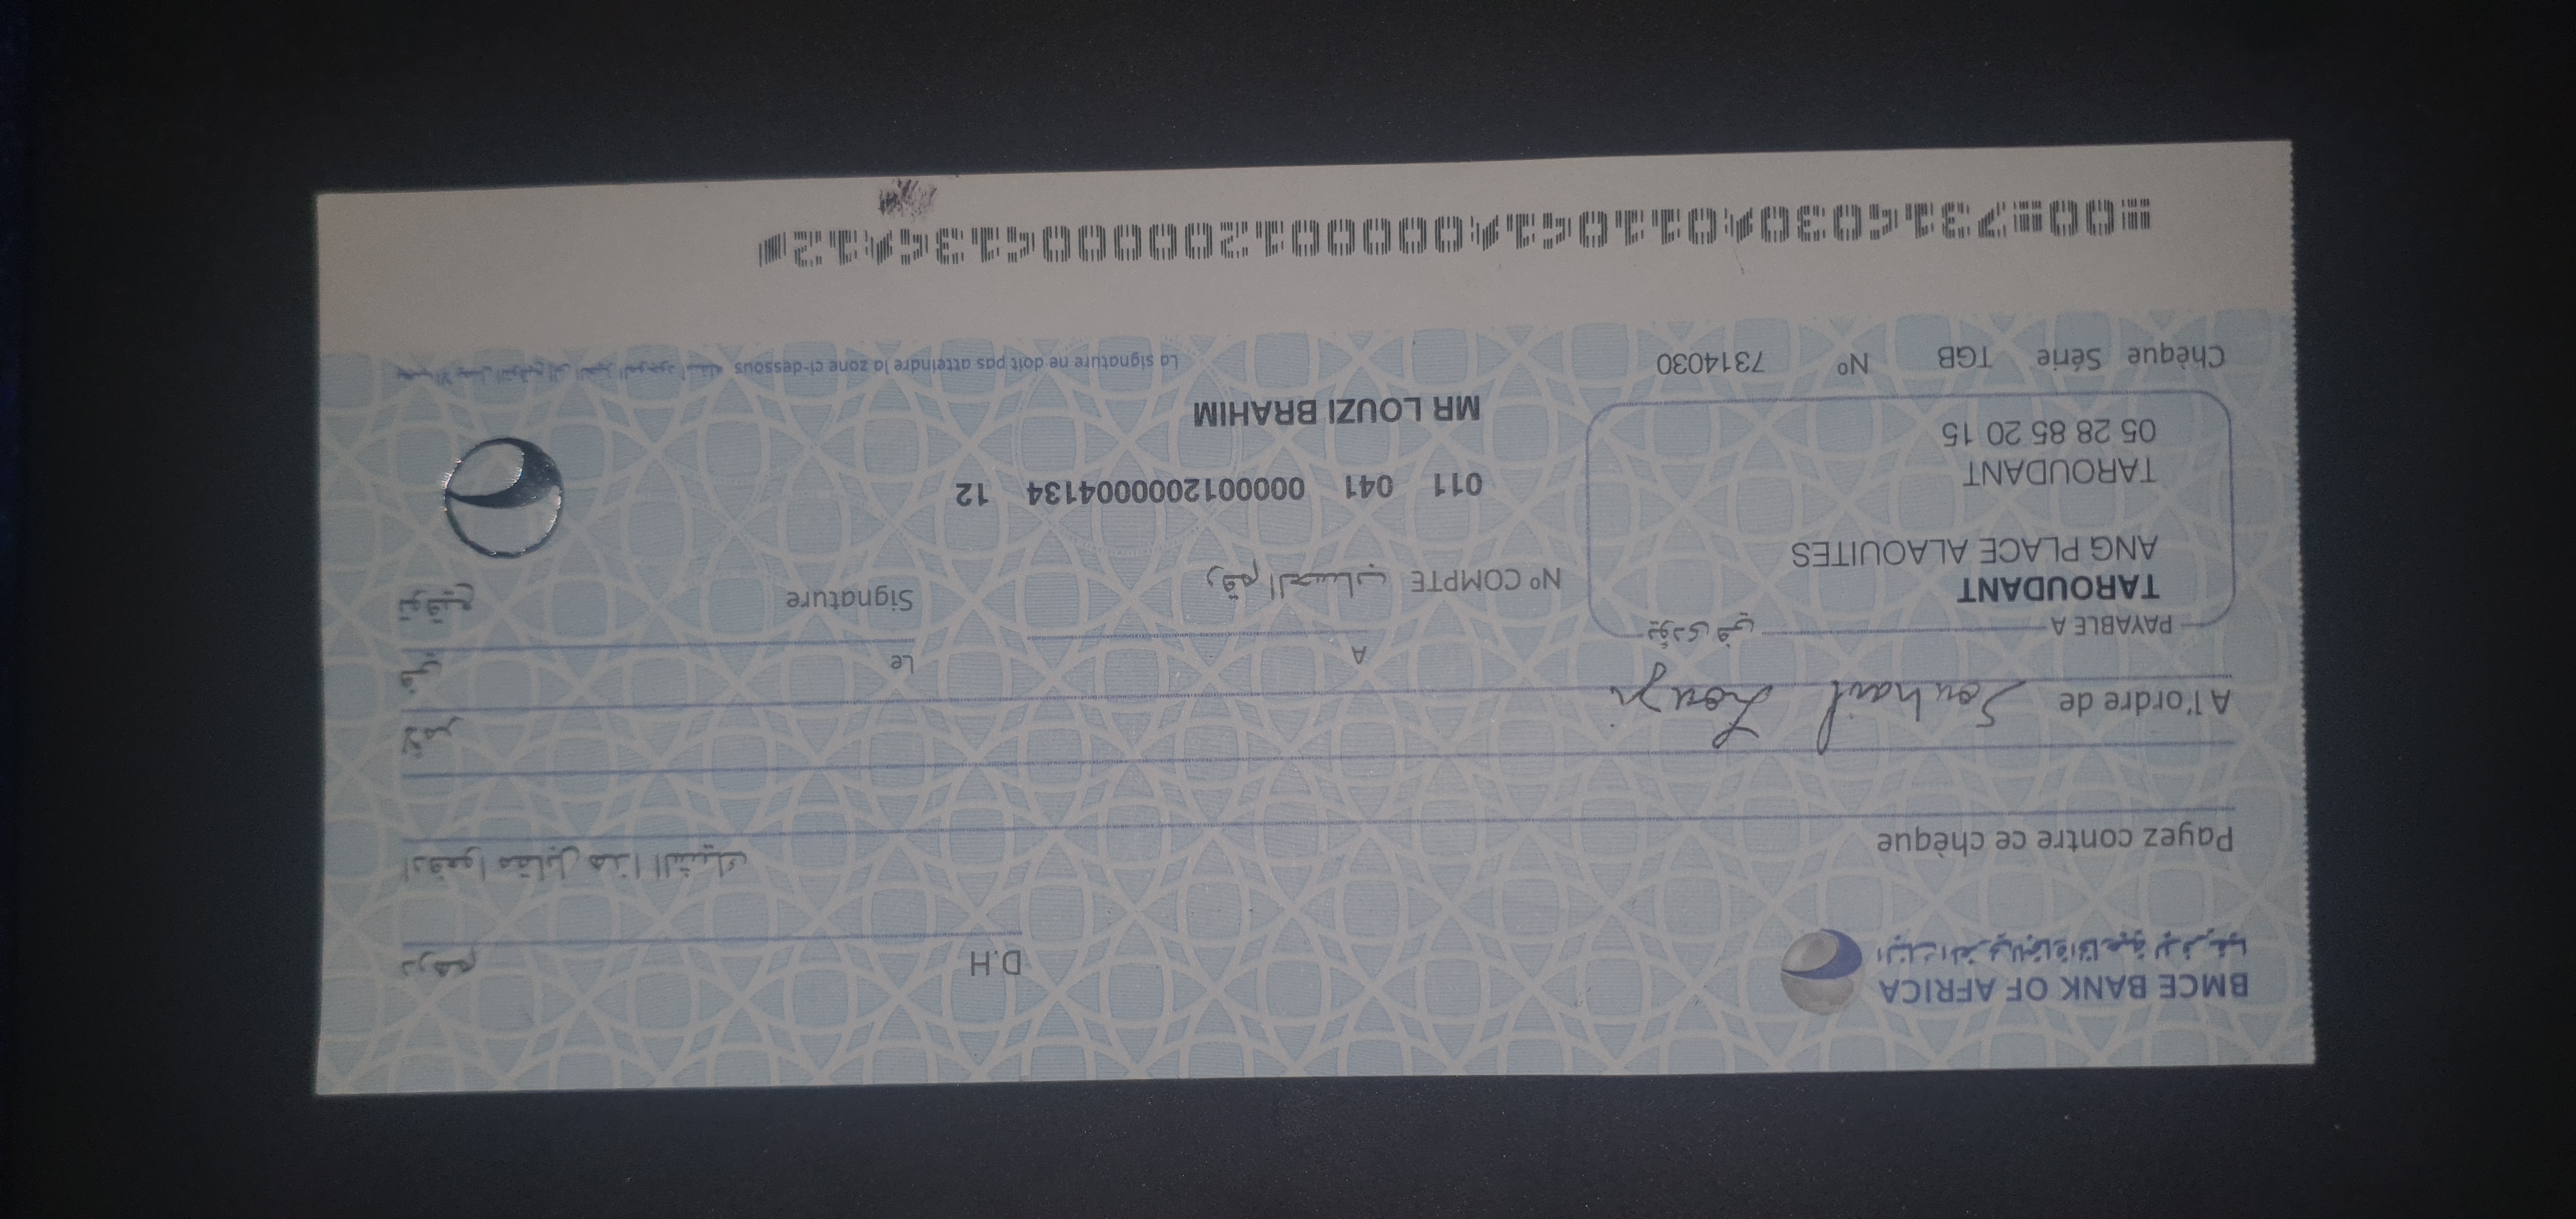 BMCE BANK OF AFRICA
البنك المغربي للتجارة الخارجية لإفريقيا
D.H درهم
Payez contre ce chèque ادفعوا مقابل هذا الشيك
A l'ordre de Souhail Louzi لأمر
A Le في
PAYABLE A يؤدى في
TAROUDANT
ANG PLACE ALAOUITES
TAROUDANT
05 28 85 20 15
N° COMPTE رقم الحساب
Signature توقيع
011 041 0000012000004134 12
MR LOUZI BRAHIM
Chèque Série TGB N° 7314030
La signature ne doit pas atteindre la zone ci-dessous يجب ألا يصل التوقيع إلى الحيز الموجود أسفله
00 7314030 011041 0000012000004134 12